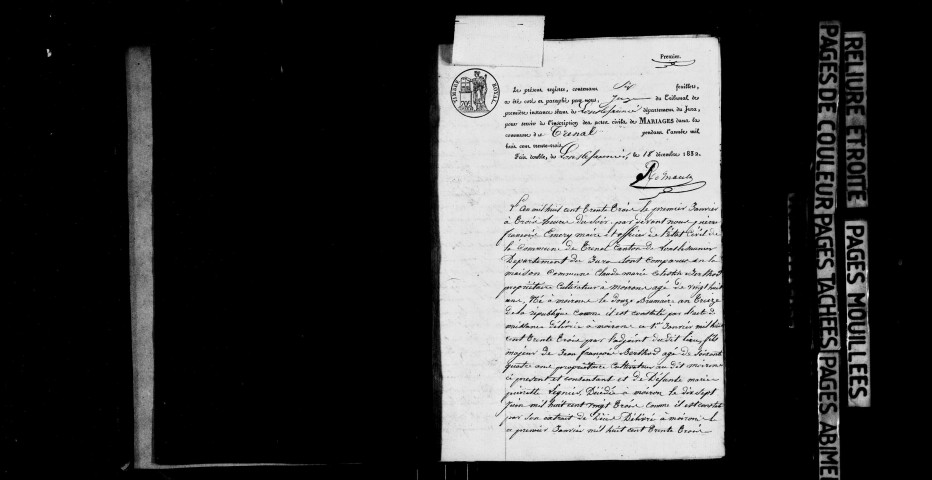 Premier.
TIMBRE ROYAL
Le présent registre, contenant feuillets,
a été coté et paraphé par nous, Juge du Tribunal de
première instance séant de Lons-le-Saunier département du Jura,
pour servir à l'inscription des actes civils de MARIAGES dans la
commune de Trenal pendant l'année mil
huit cent trente-trois.
Fait double, de Lons-le-Saunier, le 18 décembre 1832.
L'an mil huit cent trente trois le premier Janvier
à trois heures du soir, par devant nous pierre
françois maire et officier de l'état Civil de
la Commune de Trenal Canton de
Département du Jura Sont comparus en la
maison Commune Claude marie Berthod
propriétaire Cultivateur à moiron agé de vingt huit
ans, Né à moiron le douze Brumaire an treize
de la république Comme il est constaté par l'acte de
naissance délivré à moiron ce 1er Janvier mil huit
cent trente trois par l'adjoint dudit lieu, fils
majeur de Jean françois Berthod agé de soixante
quatre ans propriétaire Cultivateur au dit moiron
à présent et consentant et de Défunte marie
pierrette Décédée à moiron le dix Sept
Juin mil huit cent vingt trois Comme il est constaté
par son extrait de Décès Délivré à moiron le
premier Janvier mil huit cent trente trois
RELIURE ETROITE
PAGES MOUILLEES
PAGES DE COULEUR
PAGES TACHEES
PAGES ABIME